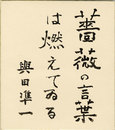 薔薇の言葉
は燃えてゐる
與田凖一